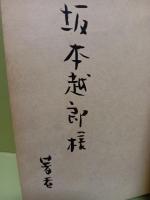 坂本越郎様
著者